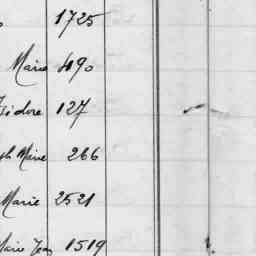 1725
Marie 490
Isidore 127
ph Marie 266
Marie 2521
Marie Jean 1519